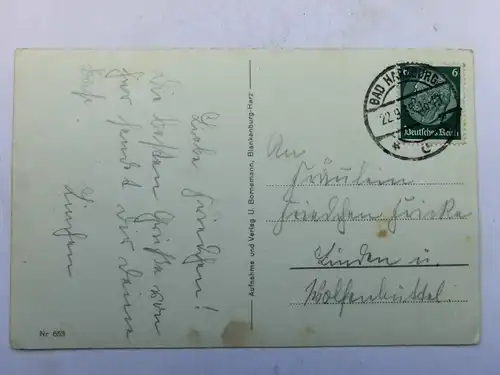 Liebe Friedchen!
Die besten Grüße von
hier sendet Dir Deine
Linchen
Nr 653
Aufnahme und Verlag U. Bornemann, Blankenburg-Harz
BAD HARZBURG
22.9.
6
Deutsches Reich
An
Fräulein
Friedchen Fricke
Linden u.
Wolfenbüttel.